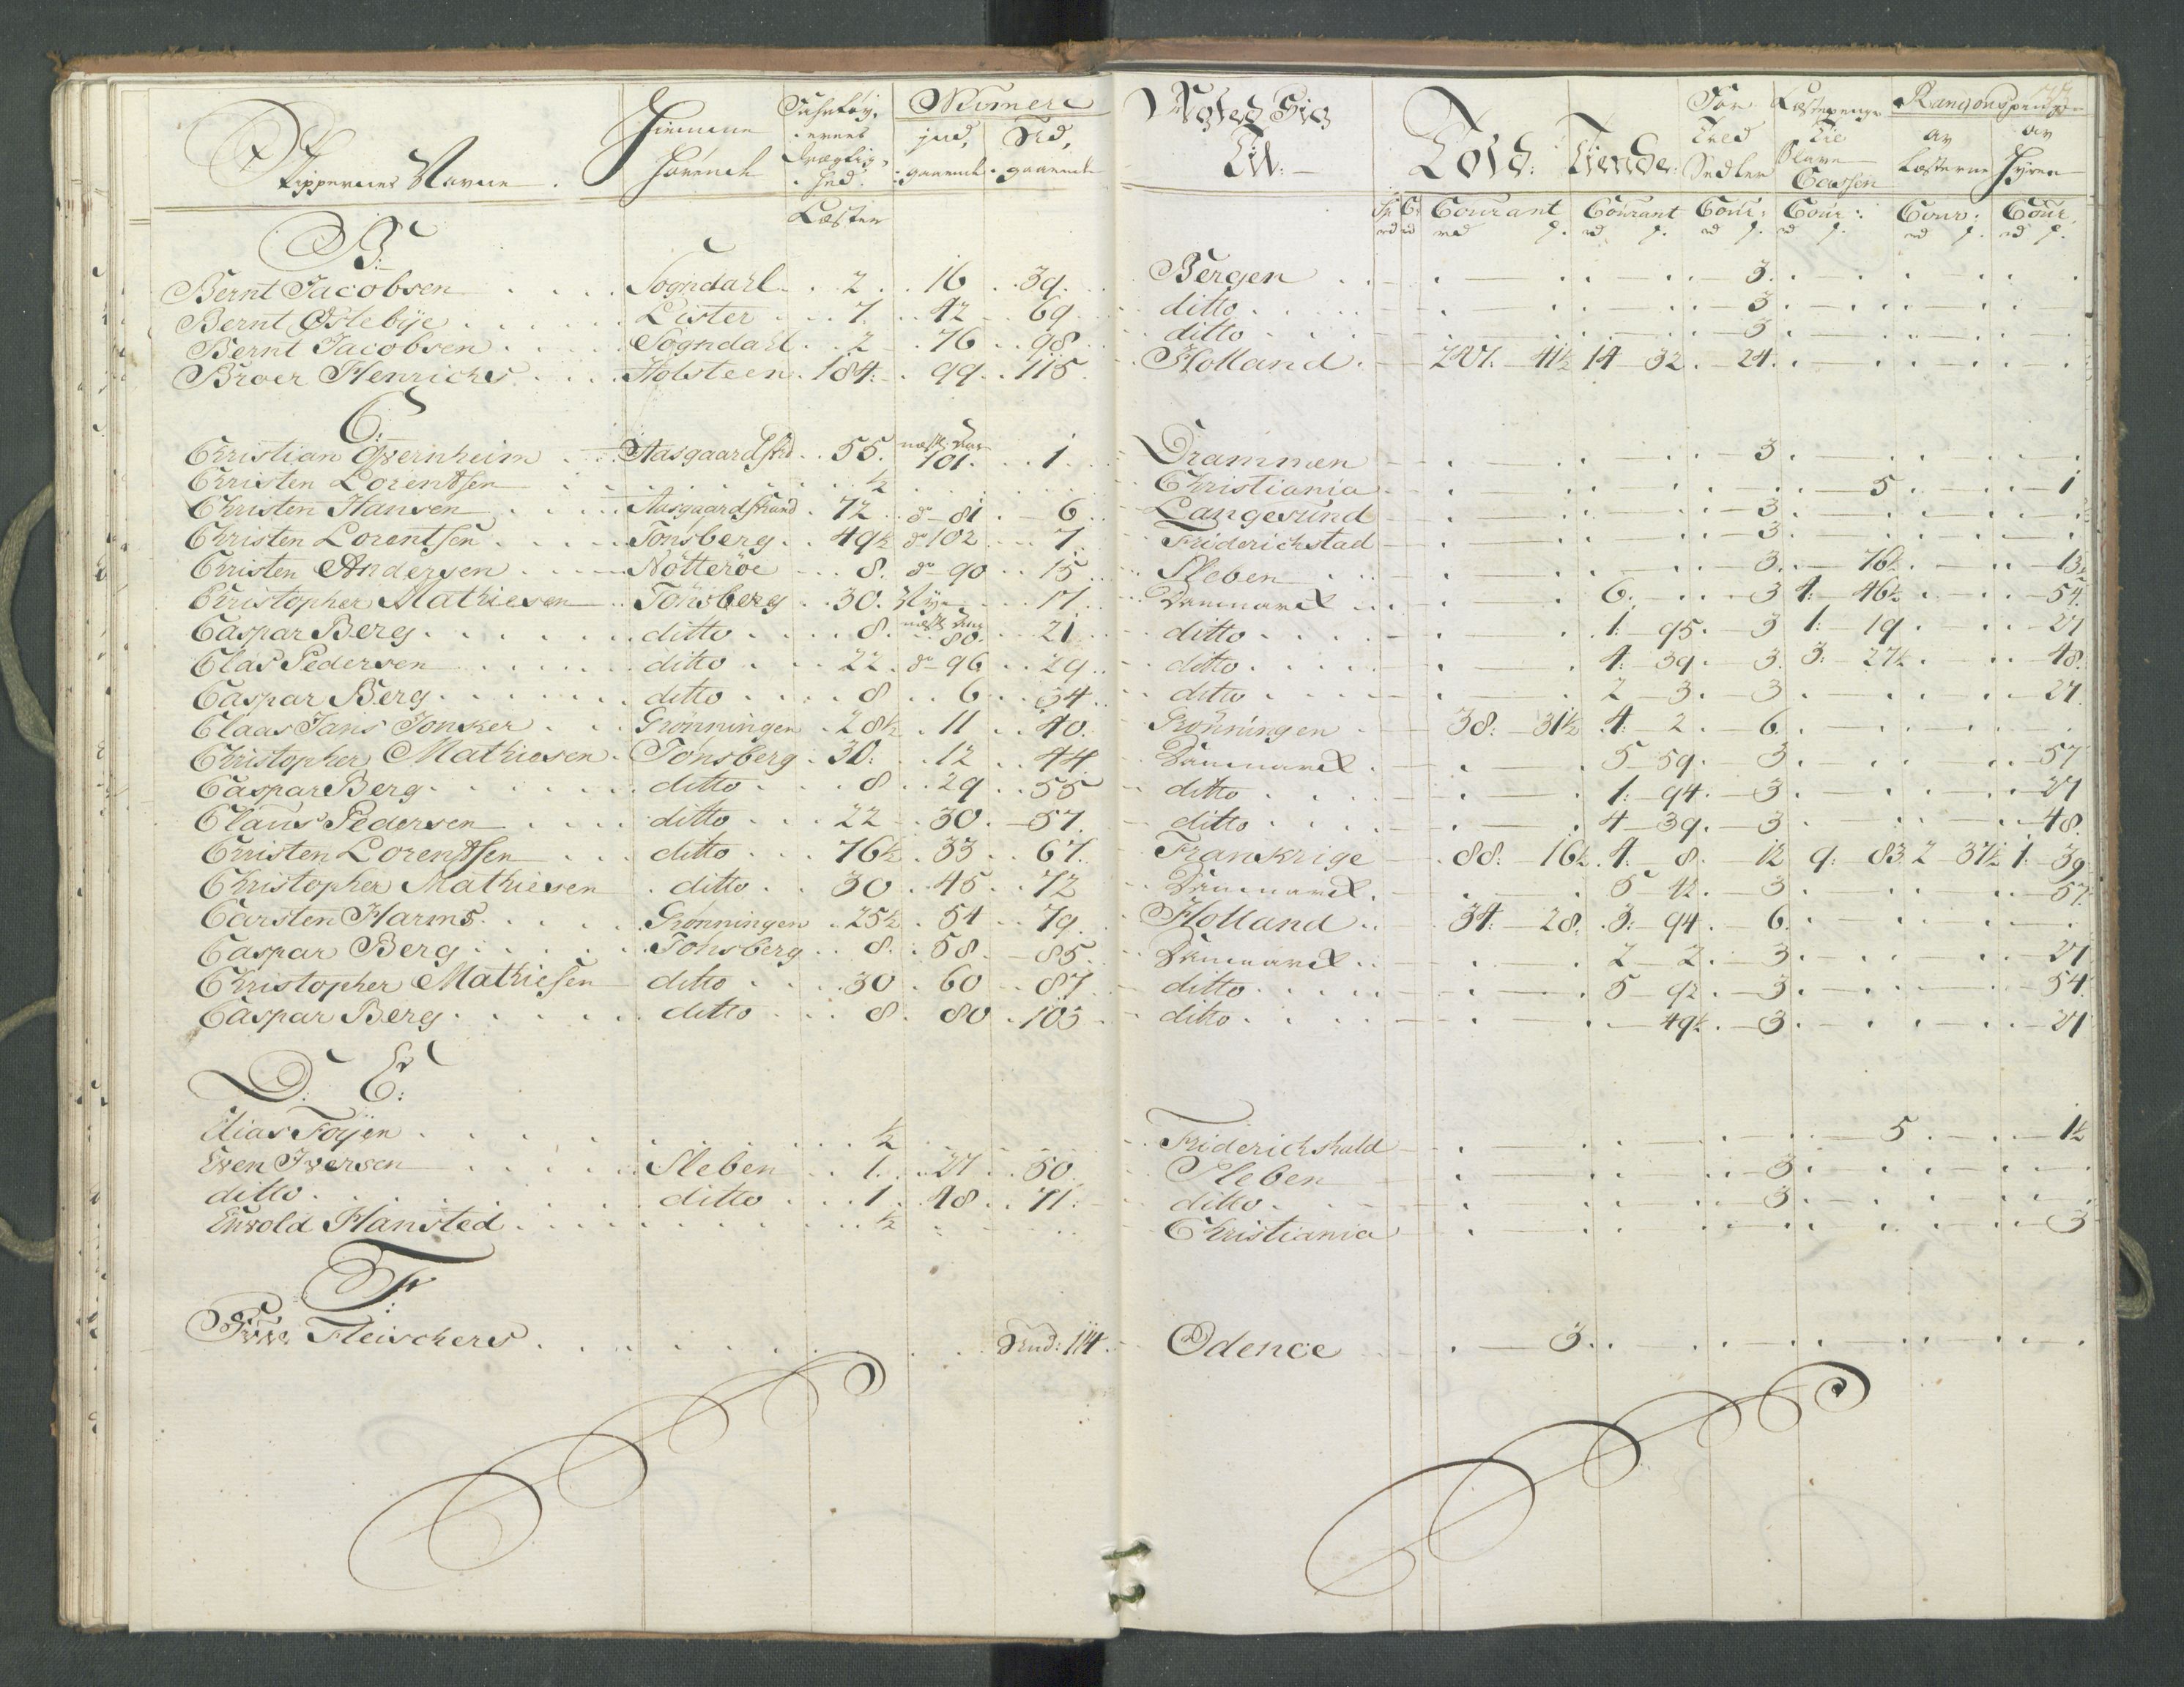 Skippernes Navne
Hiemme
hørende
Fartøy-
ernes
Drægtig-
hed
Læster
Numere
ind-
gaaende
Ud-
gaaende
Til
Told:
Tiende:
For
Fred
Sedler
Læstepenge
Til
Slave
Cassen
Ranzonspenge
av
Læsterne
av
Hyren
Courant Courant Cour: Cour: Cour: Cour.
B:
Bernt Jacobsen Sogndahl 2 16 39. Bergen 3.
Bernt Østebÿe Lister 7. 42 69 ditto 3.
Bernt Jacobsen Sogndahl 2 76 98 ditto 3
Broer Henrichs Holsteen 184. 99 115 Holland 207. 41½ 14 32. 24.
C:
Christian Qvernheim Aasgaardstrd 55. 101. 1. Drammen 3.
Christen Lorentsen ½ Christiania 5 1
Christen Hansen Aasgaardstrand 72 do 81 6 Langesund 3.
Christen Lorentsen Tonsberg 49½ do 102 7. Friderichstad 3.
Christen Andersen Nötteröe 8. do 90 15 Sleben 3. 76½ 13½
Christopher Mathiesen Tonsberg 30. Ny 17 Danmarck 6. 3 4. 46½ 54.
Caspar Berg ditto 8. 80. 21 ditto 1. 95. 3 1. 19. 27
Clas Pedersen ditto 22. do 96 29 ditto 4. 39. 3. 3. 27½ 48.
Caspar Berg ditto 8 6 34 ditto 2 3. 3. 27.
Claas Jans Jonker Grönningen 28½ 11 40. Grönningen 38. 31½ 4. 2. 6.
Christopher Mathiesen Tonsberg 30. 12 44 Danmarck 5 59. 3. 57
Caspar Berg ditto 8 29 55 ditto 1. 94. 3. 27
Claus Pedersen ditto 22 30. 57. ditto 4 39. 3 48.
Christen Lorentsen ditto 76½ 33 67. Frankrige 88. 16½ 4. 8. 12 9. 83 2 37½ 1. 39
Christopher Mathiesen ditto 30 45 72 Danmarck 5 42. 3. 57.
Carsten Harms Grönningen 25½ 54 79. Holland 34. 28. 3. 94. 6.
Caspar Berg Tonsberg 8. 58. 85. Danmarck 2 2. 3. 27
Christopher Mathiesen ditto 30 60 87 ditto 5 92. 3. 54.
Caspar Berg ditto 8. 80 103 ditto 49½ 3. 27
D: E:
Elias Foÿen ½ Friderichshald 5 1½
Even Iversen Sleben 1. 27 50 Sleben 3.
ditto ditto 1. 48 71. ditto 3.
Enwold Hansted ½ Christiania 3
F:
Fleischers 114. Odence 3.